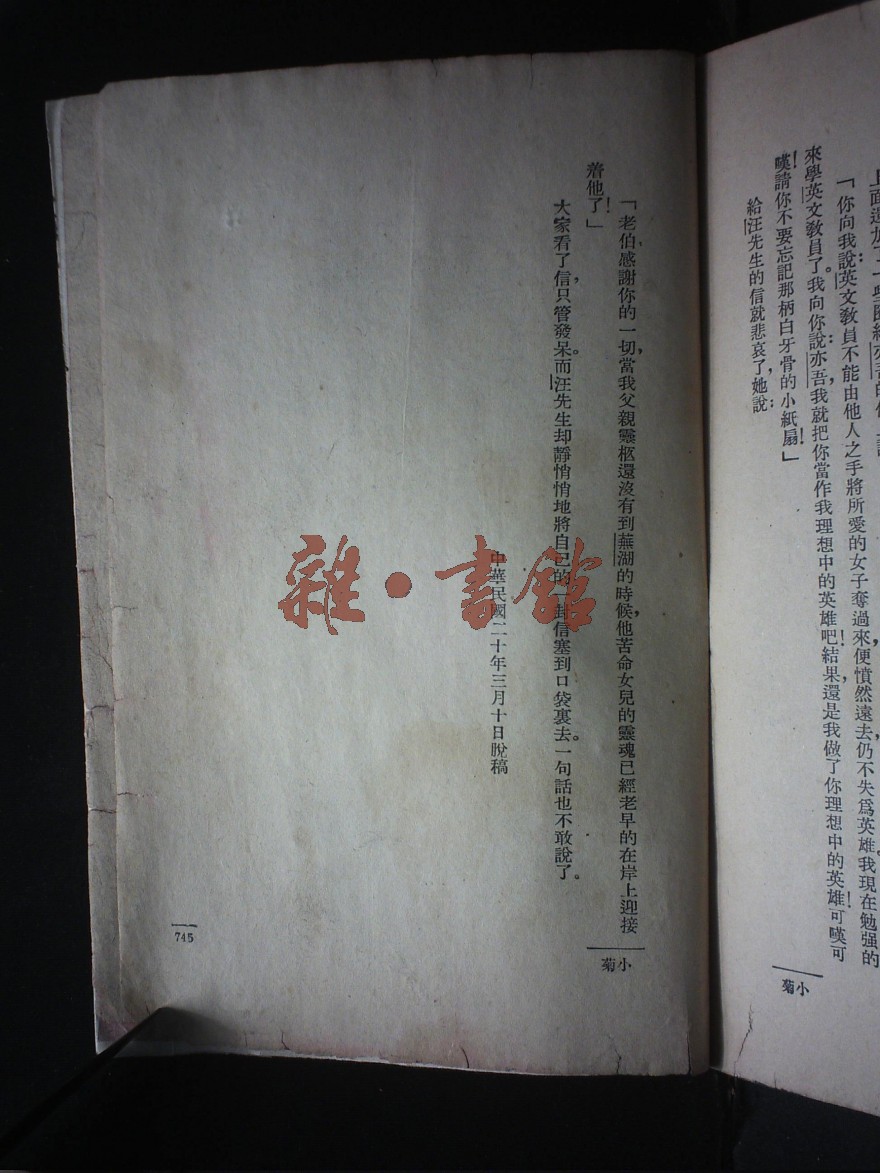 「你向我說:英文教員不能由他人之手將所愛的女子奪過來,便憤然遠去,仍不失爲英雄。我現在勉强的
來學英文教員了。我向你說:亦吾,我就把你當作我理想中的英雄吧!結果,還是我做了你理想中的英雄!可嘆可
嘆!請你不要忘記那柄白牙骨的小紙扇!」
給汪先生的信就悲哀了,她說:
小菊
「老伯,感謝你的一切,當我父親靈柩還沒有到蕪湖的時候,他苦命女兒的靈魂已經老早的在岸上迎接
着他了!」
大家看了信,只管發呆。而汪先生却靜悄悄地將自己的一封信塞到口袋裏去。一句話也不敢說了。
中華民國二十年三月十日脫稿
小菊
745
雜·書館